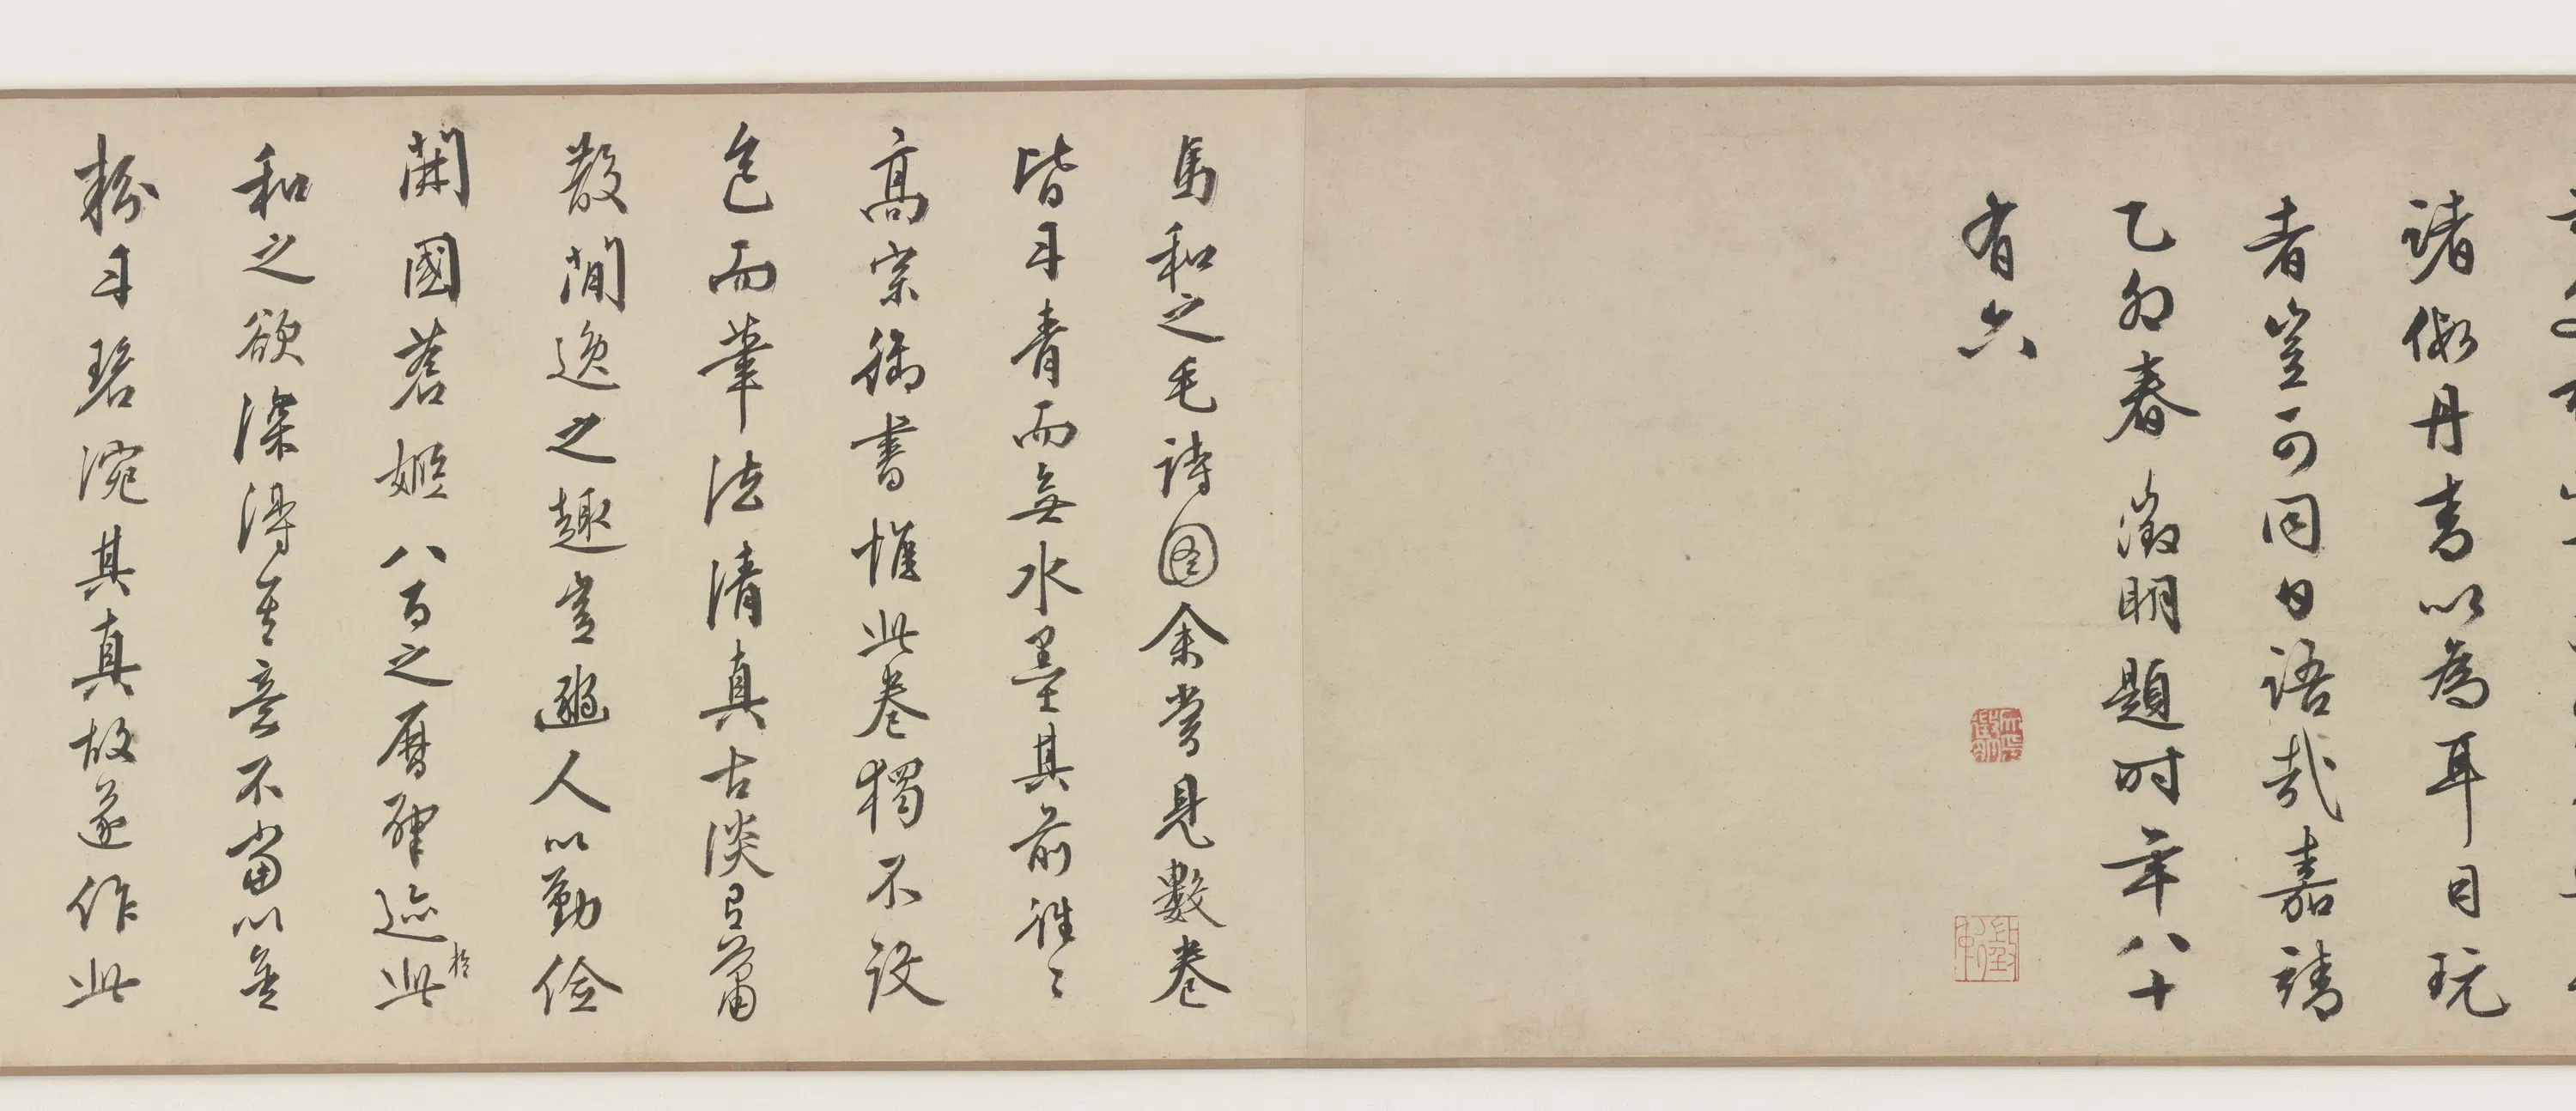 諸傚丹青以為耳目玩
者豈可同日語哉嘉靖
乙卯春徵明題時年八十
有六
馬和之毛詩圖余嘗見數卷
皆丹青而無水墨其前往〻
高宗御書惟此卷獨不設
色而筆法清真古淡有蕭
散閒逸之趣豈豳人以勤儉
開國蒼姬八百之曆肇迹於此
和之欲深得其意不當以無
粉丹碧浼其真故遂作此